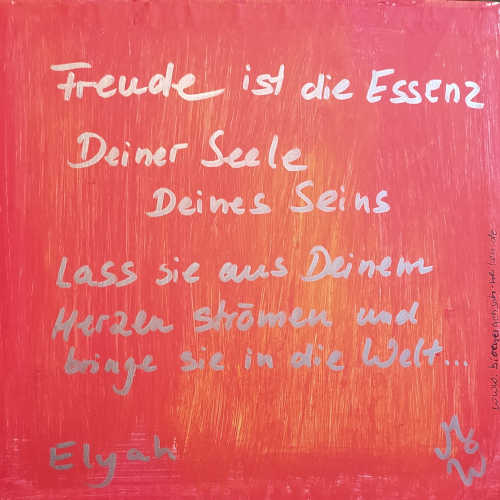 Freude ist die Essenz
Deiner Seele
Deines Seins
Lass sie aus Deinem
Herzen strömen und
bringe sie in die Welt...
Elyah